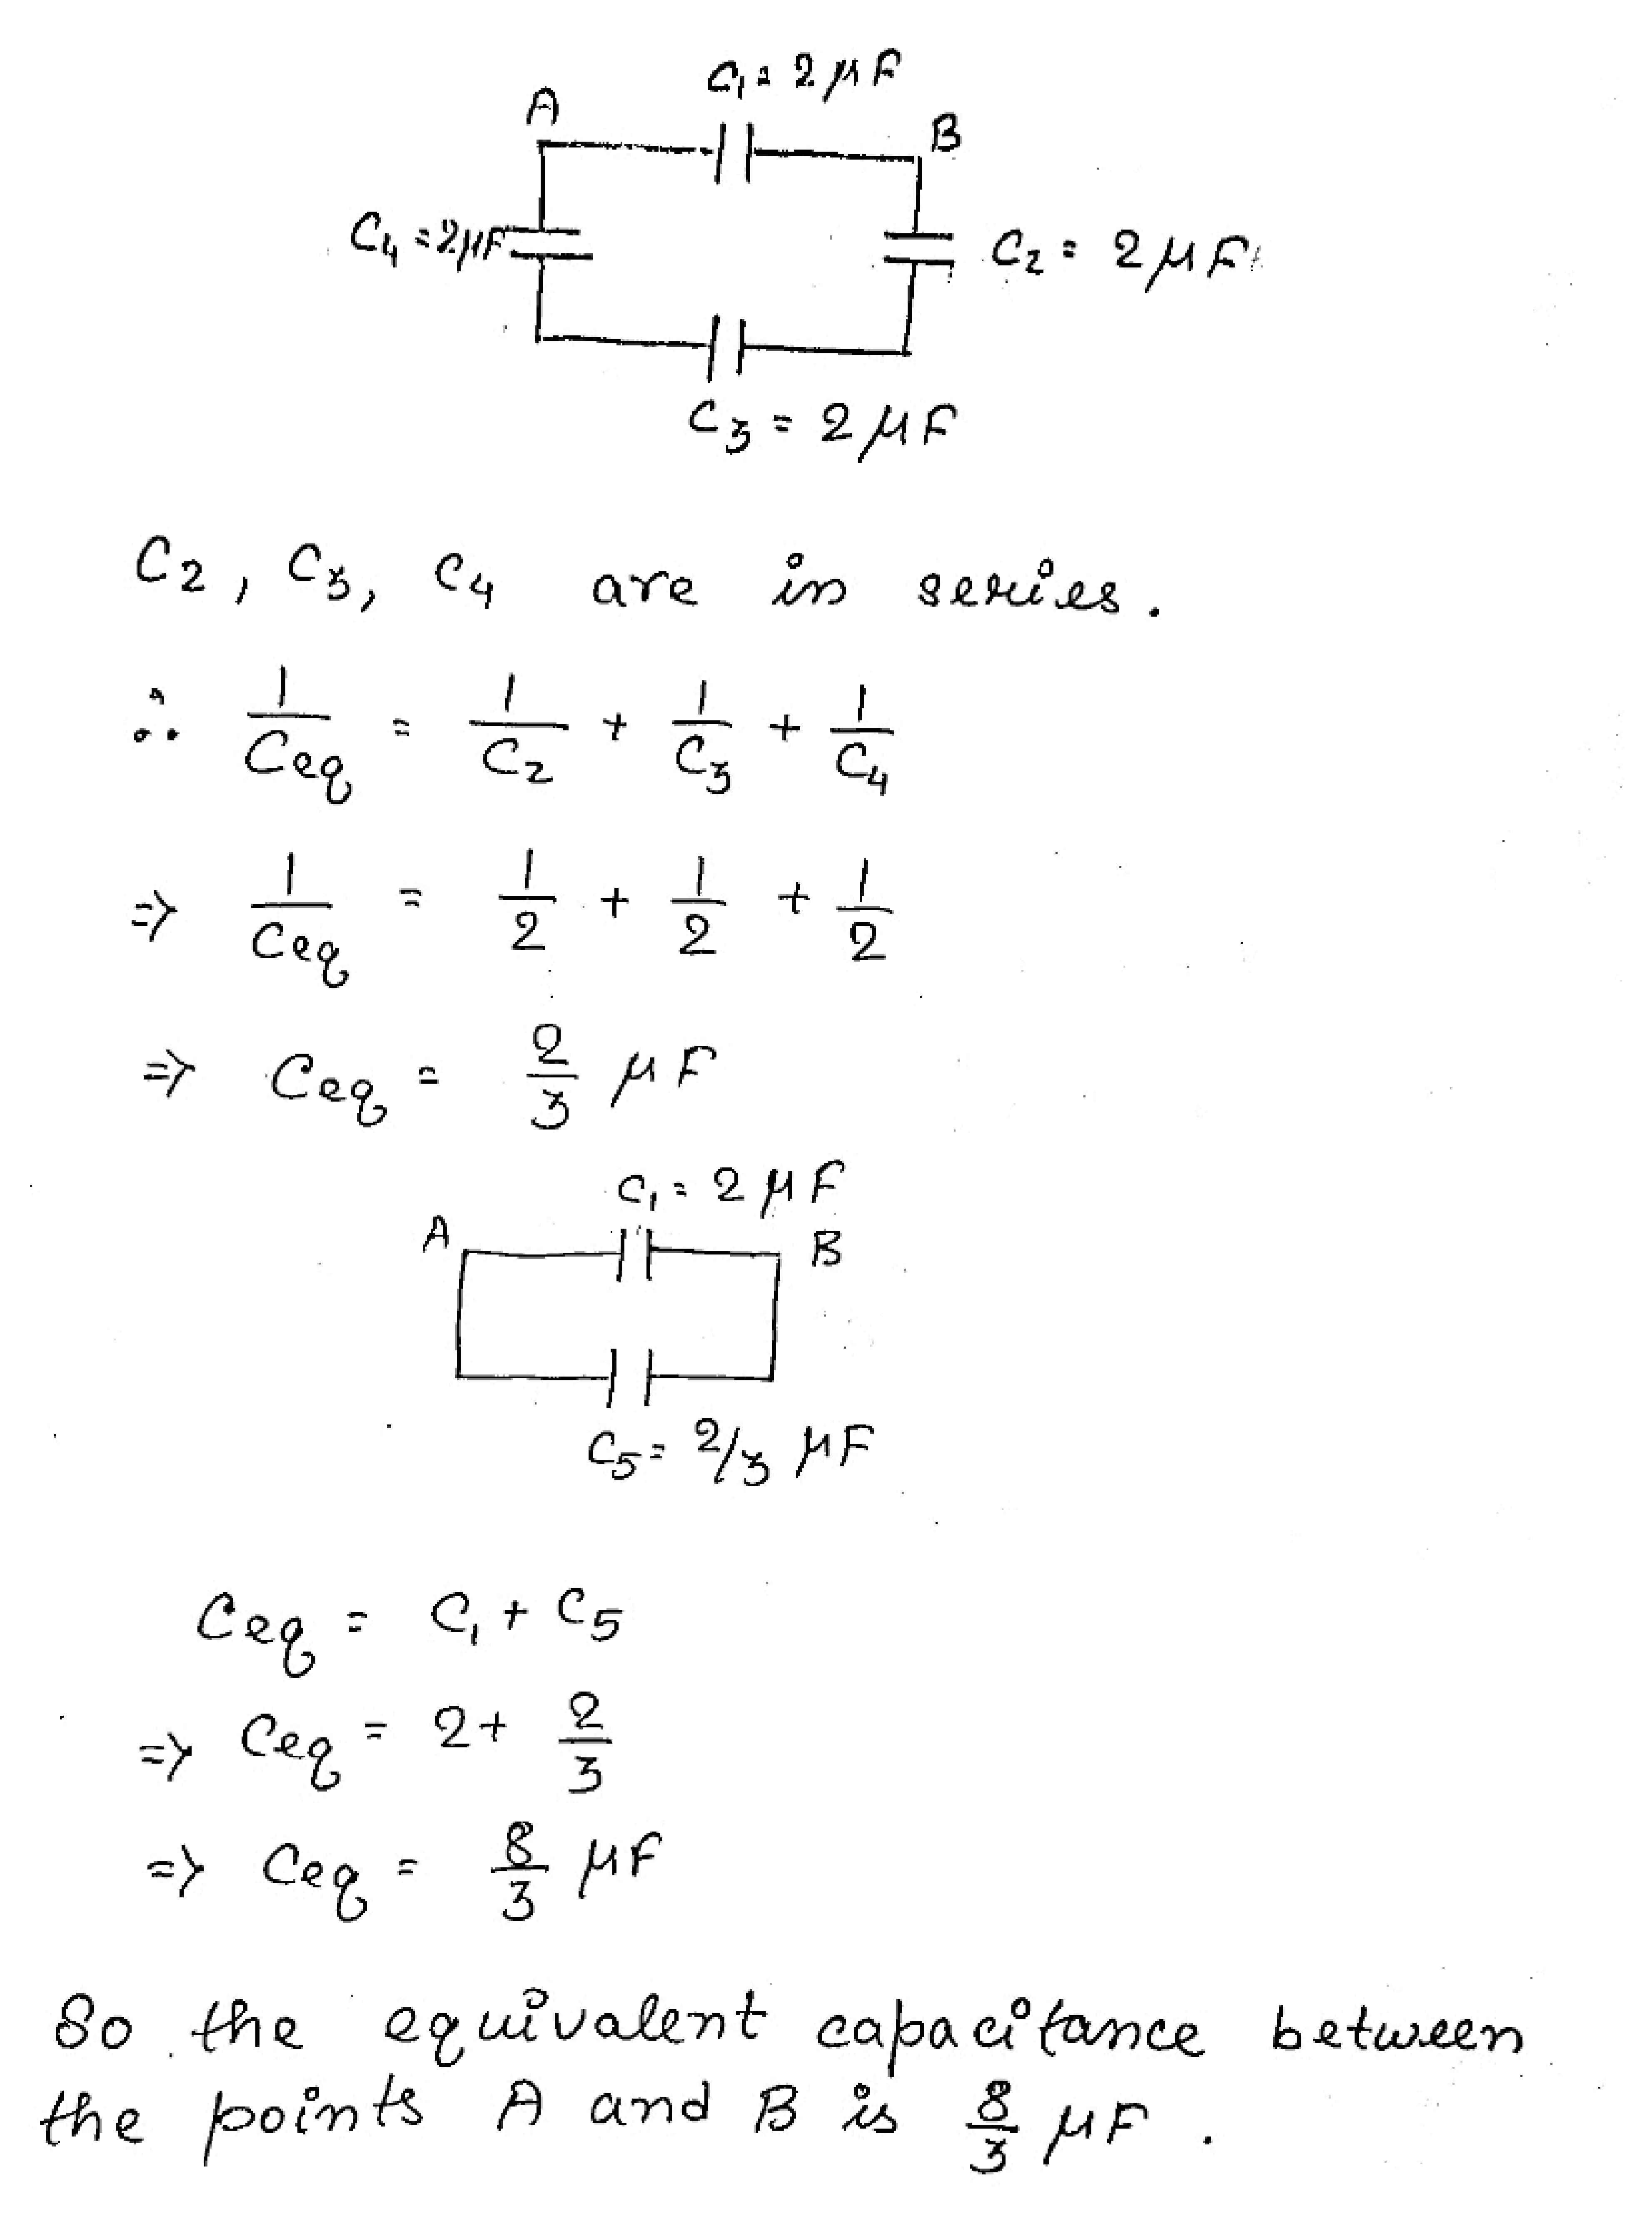 C₁ = 2 μF
A
B
C₄ = 2μF
C₂ = 2 μF
C₃ = 2 μF
C₂, C₃, C₄ are in series.
∴ 1/Ceq = 1/C₂ + 1/C₃ + 1/C₄
⇒ 1/Ceq = 1/2 + 1/2 + 1/2
⇒ Ceq = 2/3 μF
C₁ = 2 μF
A
B
C₅ = 2/3 μF
Ceq = C₁ + C₅
⇒ Ceq = 2 + 2/3
⇒ Ceq = 8/3 μF
So the equivalent capacitance between
the points A and B is 8/3 μF.